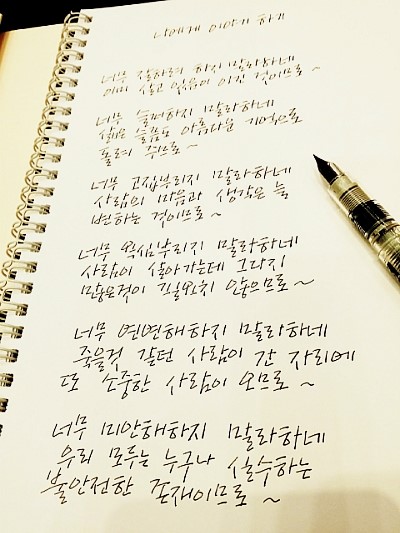 나에게 이야기 하기
너무 잘하려 하지 말라하네
이미 살고 있음이 이긴 것이므로~
너무 슬퍼하지 말라하네
삶은 슬픔도 아름다운 기억으로
돌려 주므로~
너무 고집부리지 말라하네
사람의 마음과 생각은 늘
변하는 것이므로~
너무 욕심부리지 말라하네
사람이 살아가는데 그다지
많은것이 필요치 않으므로~
너무 연연해하지 말라하네
죽을것 같던 사람이 간 자리에
또 소중한 사람이 오므로~
너무 미안해하지 말라하네
우리 모두는 누구나 실수하는
불안전한 존재이므로~